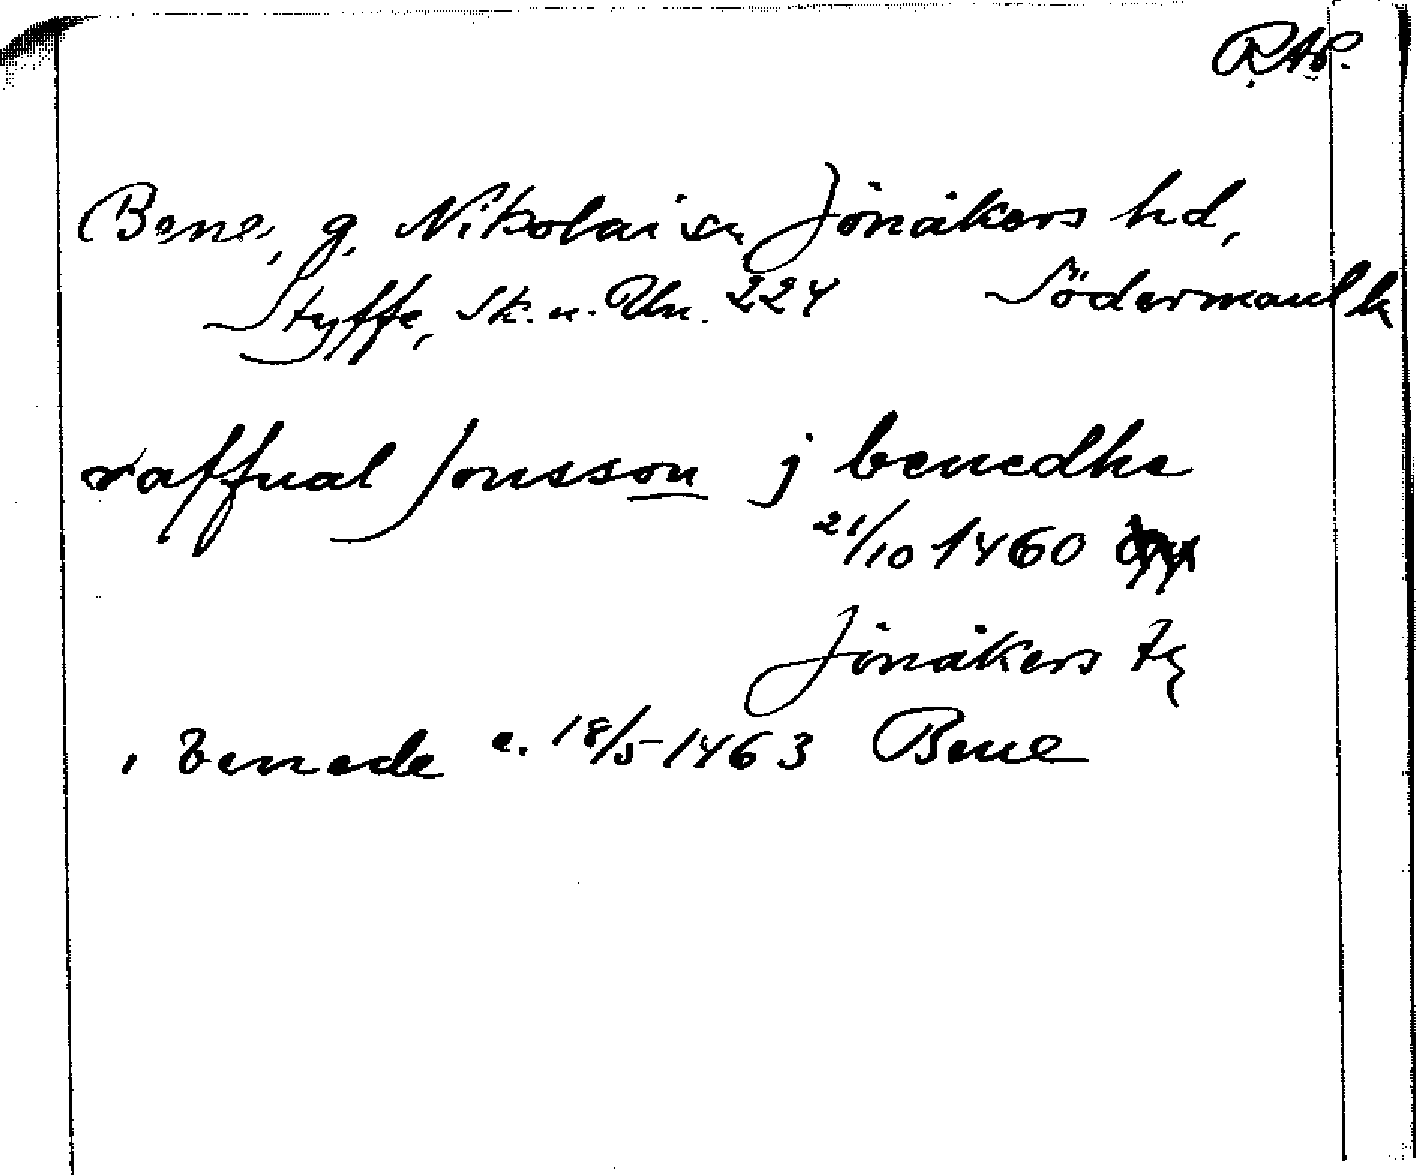 RAP.
Bene, g. Nikolai sn, Jönåkers hd,
Styffe, Sk. u. Un. 224 Södermanl
raffual Jonsson j benedhe
21/10 1460
Jönåkers
i benede e. 18/5 1463 Bene